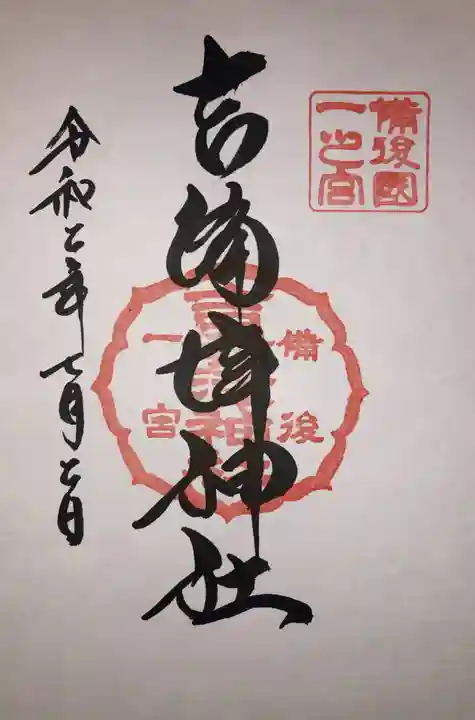 備後國
一之宮
吉備津神社
備後
一宮
令和二年七月七日